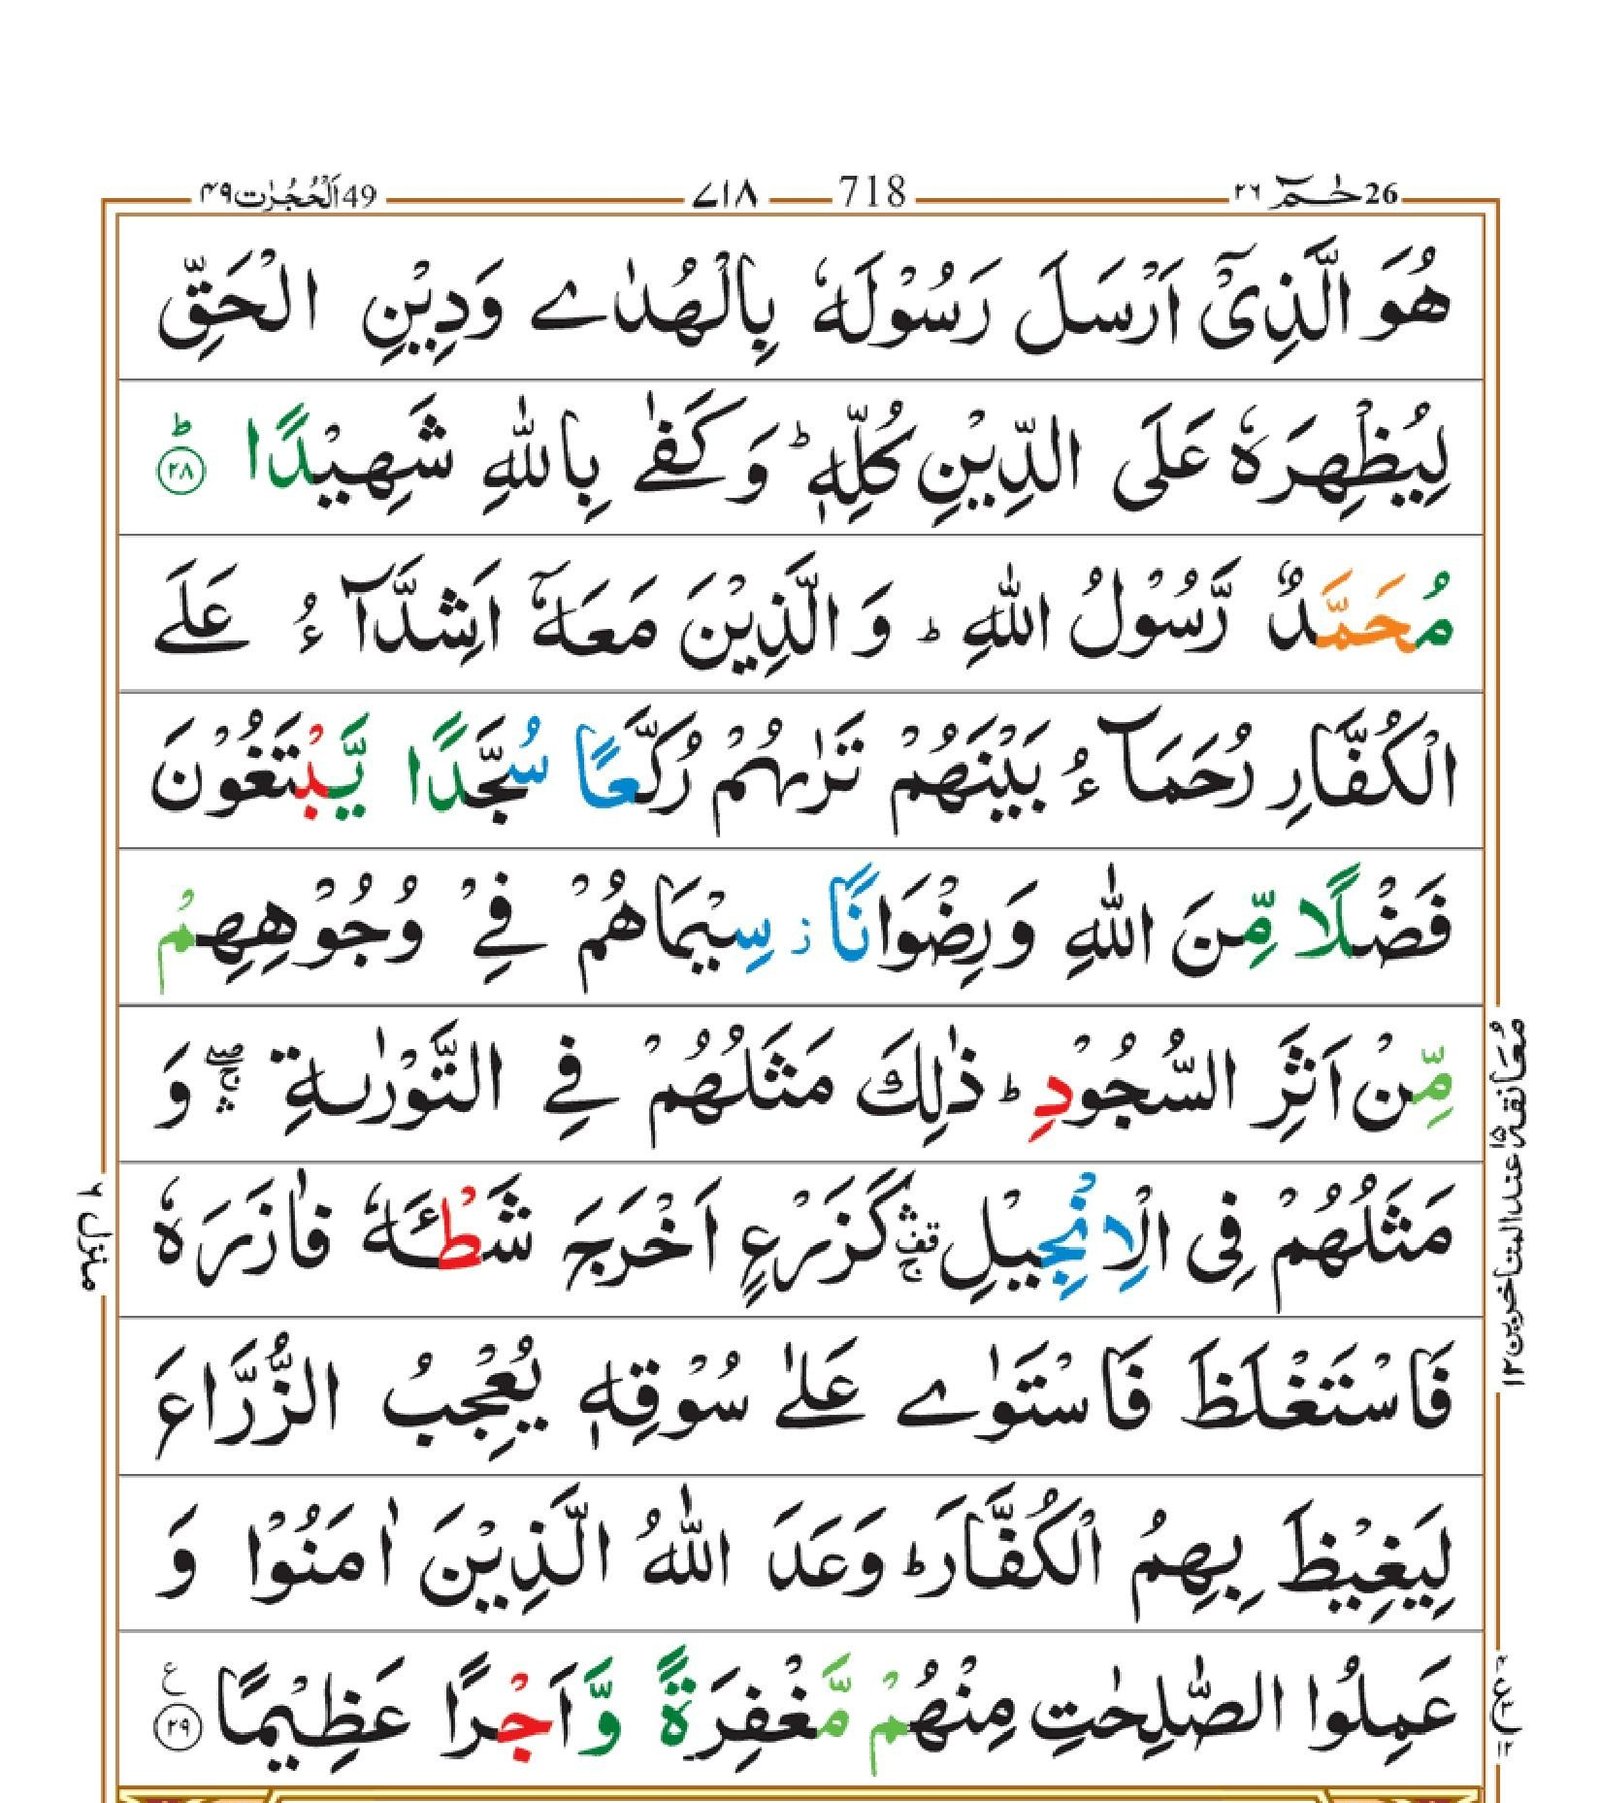 26 حٰـمٓ ٢٦ 718 ۷۱۸ 49 اَلْحُجُرٰت ۴۹
هُوَ الَّذِیْۤ اَرْسَلَ رَسُوْلَهٗ بِالْهُدٰے وَدِیْنِ الْحَقِّ
لِیُظْهِرَهٗ عَلَی الدِّیْنِ کُلِّهٖ ؕ وَ کَفٰے بِاللّٰهِ شَهِیْدًا ؕ ﴿۲۸﴾
مُحَمَّدٌ رَّسُوْلُ اللّٰهِ ؕ وَ الَّذِیْنَ مَعَهٗۤ اَشِدَّآءُ عَلَے
الْکُفَّارِ رُحَمَآءُ بَیْنَهُمْ تَرٰىهُمْ رُکَّعًا سُجَّدًا یَّبْتَغُوْنَ
فَضْلًا مِّنَ اللّٰهِ وَرِضْوَانًا ؗ سِیْمَاهُمْ فِیْ وُجُوْهِهِمْ
مِّنْ اَثَرِ السُّجُوْدِ ؕ ذٰلِكَ مَثَلُهُمْ فِے التَّوْرٰىةِ ۛۖۚ وَ
مَثَلُهُمْ فِی الْاِنْجِیْلِ ۛ۫ۚ کَزَرْعٍ اَخْرَجَ شَطْـَٔهٗ فَاٰزَرَهٗ
فَاسْتَغْلَظَ فَاسْتَوٰے عَلٰی سُوْقِهٖ یُعْجِبُ الزُّرَّاعَ
لِیَغِیْظَ بِهِمُ الْکُفَّارَ ؕ وَعَدَ اللّٰهُ الَّذِیْنَ اٰمَنُوْا وَ
عَمِلُوا الصّٰلِحٰتِ مِنْهُمْ مَّغْفِرَةً وَّاَجْرًا عَظِیْمًا ﴿۲۹﴾ ع
معانقة ۱۵ عند المتاخرين ۱۲
منزل ۶